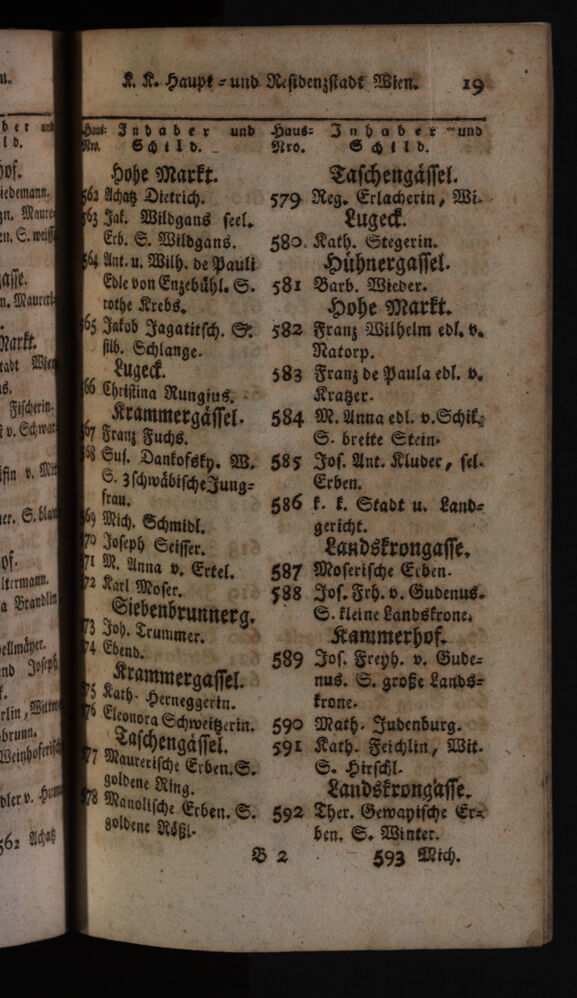 K. K. Haupt= und Residenzstadt Wien. 19
Haus= Inhaber und
Nro. Schild.
Hohe Markt.
562 Achatz Dietrich.
563 Jak. Wildgans seel.
Erb. S. Wildgans.
564 Ant. u. Wilh. de Pauli
Edle von Enzebühl. S.
rothe Krebs.
565 Jakob Jagatitsch. S.
silb. Schlange.
Lugeck.
566 Christina Rungius.
Krammergässel.
567 Franz Fuchs.
568 Sus. Dankofsky. W.
S. 3 schwäbische Jung=
frau.
569 Mich. Schmidl.
570 Joseph Seisser.
571 M. Anna v. Ertel.
572 Karl Moser.
Siebenbrunnerg.
573 Joh. Trummer.
574 Ebend.
Krammergassel.
575 Kath. Herneggerin.
576 Eleonora Schweitzerin.
Taschengässel.
577 Maurerische Erben. S.
goldene Ring.
578 Manolische Erben. S.
goldene Rößl.
Haus= Inhaber und
Nro. Schild.
Taschengässel.
579 Reg. Erlacherin, Wi.
Lugeck.
580. Kath. Stegerin.
Hühnergassel.
581 Barb. Wieder.
Hohe Markt.
582 Franz Wilhelm edl. v.
Natorp.
583 Franz de Paula edl. v.
Kratzer.
584 M. Anna edl. v. Schik.
S. breite Stein.
585 Jos. Ant. Kluder, sel.
Erben.
586 k. k. Stadt u. Land=
gericht.
Landskrongasse.
587 Moserische Erben.
588 Jos. Frh. v. Gudenus.
S. kleine Landskrone.
Kammerhof.
589 Jos. Freyh. v. Gude=
nus. S. große Lands=
krone.
590 Math. Judenburg.
591 Kath. Feichlin, Wit.
S. Hirschl.
Landskrongasse.
592 Ther. Gewayische Er=
ben. S. Winter.
B 2 593 Mich.